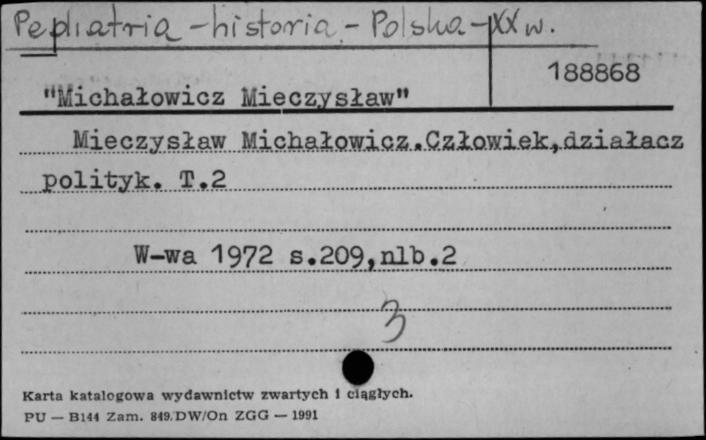 Pediatria - historia - Polska - XX w.
188868
"Michałowicz Mieczysław"
Mieczysław Michałowicz.Człowiek,działacz
polityk. T.2
W-wa 1972 s.209,nlb.2
3
Karta katalogowa wydawnictw zwartych i ciągłych.
PU — B144 Zam. 849.DW/On ZGG — 1991